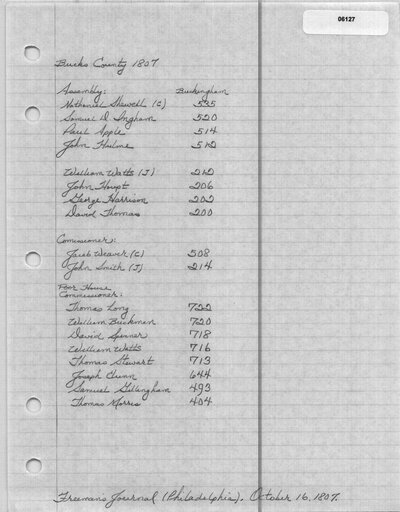 06127
Bucks County 1807
Assembly: Buckingham
Nathaniel Shewell (C) 535
Samuel D. Ingham 520
Paul Apple 514
John Hulme 512
William Watts (J) 212
John Houpt 206
George Harrison 202
David Thomas 200
Comissioner:
Jacob Weaver (C) 508
John Smith (J) 214
Poor House
Commissioner:
Thomas Long 722
William Buckman 720
David Spinner 718
William Watts 716
Thomas Stewart 713
Joseph Clunn 644
Samuel Gillingham 493
Thomas Morris 404
Freeman's Journal (Philadelphia). October 16, 1807.